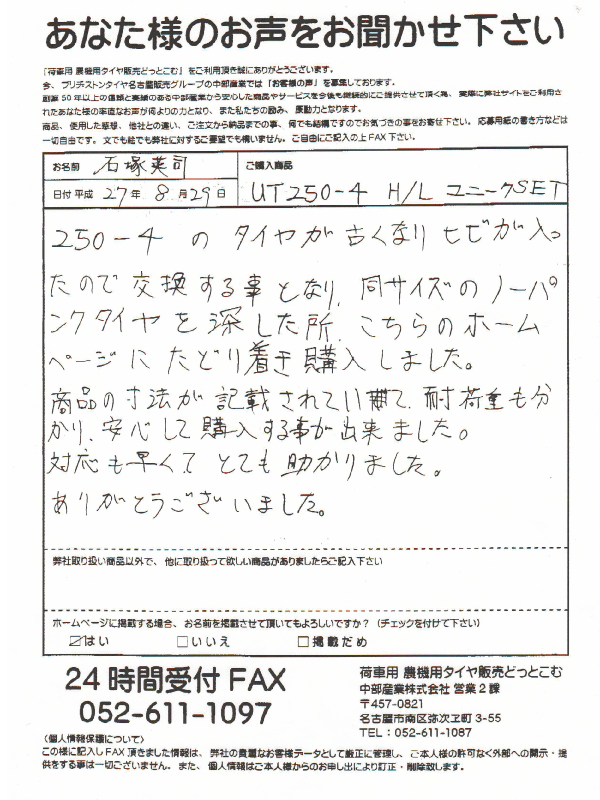 あなた様のお声をお聞かせ下さい
「荷車用 農機用タイヤ販売どっとこむ」をご利用頂き誠にありがとうございます。
今、ブリヂストンタイヤ名古屋販売グループの中部産業では「お客様の声」を募集しております。
創業50年以上の信頼と実績のある中部産業から安心した商品やサービスを今後も継続的にご提供させて頂く為、実際に弊社サイトをご利用さ
れたあなた様の率直なお声が何よりの力となり、また私たちの励み、原動力となります。
商品、使用した感想、他社との違い、ご注文から納品までの事、何でも結構ですのでお気づきの事をお寄せ下さい。応募用紙の書き方などは
一切自由です。文でも絵でも弊社に対するご要望でも構いません。ご自由にご記入の上FAX下さい。
お名前 石塚英司 ご購入商品
日付 平成 27年 8月29日 UT250-4 H/L ユニークSET
250-4 の タイヤが古くなり ヒビが入っ
たので 交換する事となり、同サイズのノーパ
ンクタイヤを探した所、こちらのホーム
ページにたどり着き購入しました。
商品の寸法が記載されてい て、耐荷重も分
かり、安心して購入する事が出来ました。
対応も早くて とても助かりました。
ありがとうございました。
弊社取り扱い商品以外で、他に取り扱って欲しい商品がありましたらご記入下さい
ホームページに掲載する場合、お名前を掲載させて頂いてもよろしいですか?(チェックを付けて下さい)
☑はい □いいえ □掲載だめ
24時間受付 FAX
052-611-1097
荷車用 農機用タイヤ販売どっとこむ
中部産業株式会社 営業2課
〒457-0821
名古屋市南区弥次ヱ町3-55
TEL:052-611-1087
〈個人情報保護について〉
この様に記入しFAX頂きました情報は、弊社の貴重なお客様データとして厳正に管理し、ご本人様の許可なく外部への開示・提
供をする事は一切ございません。また、個人情報はご本人様からのお申し出により訂正・削除致します。